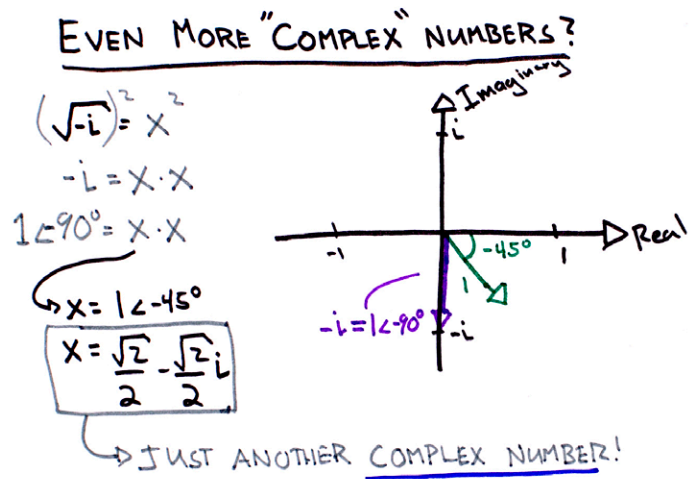 EVEN MORE "COMPLEX" NUMBERS?
(√-i)² = x²
-i = x·x
1∠-90° = x·x
x = 1∠-45°
x = √2/2 - √2/2 i
JUST ANOTHER COMPLEX NUMBER!
Imaginary
i
-1
1
Real
-45°
1
-i = 1∠-90°
-i